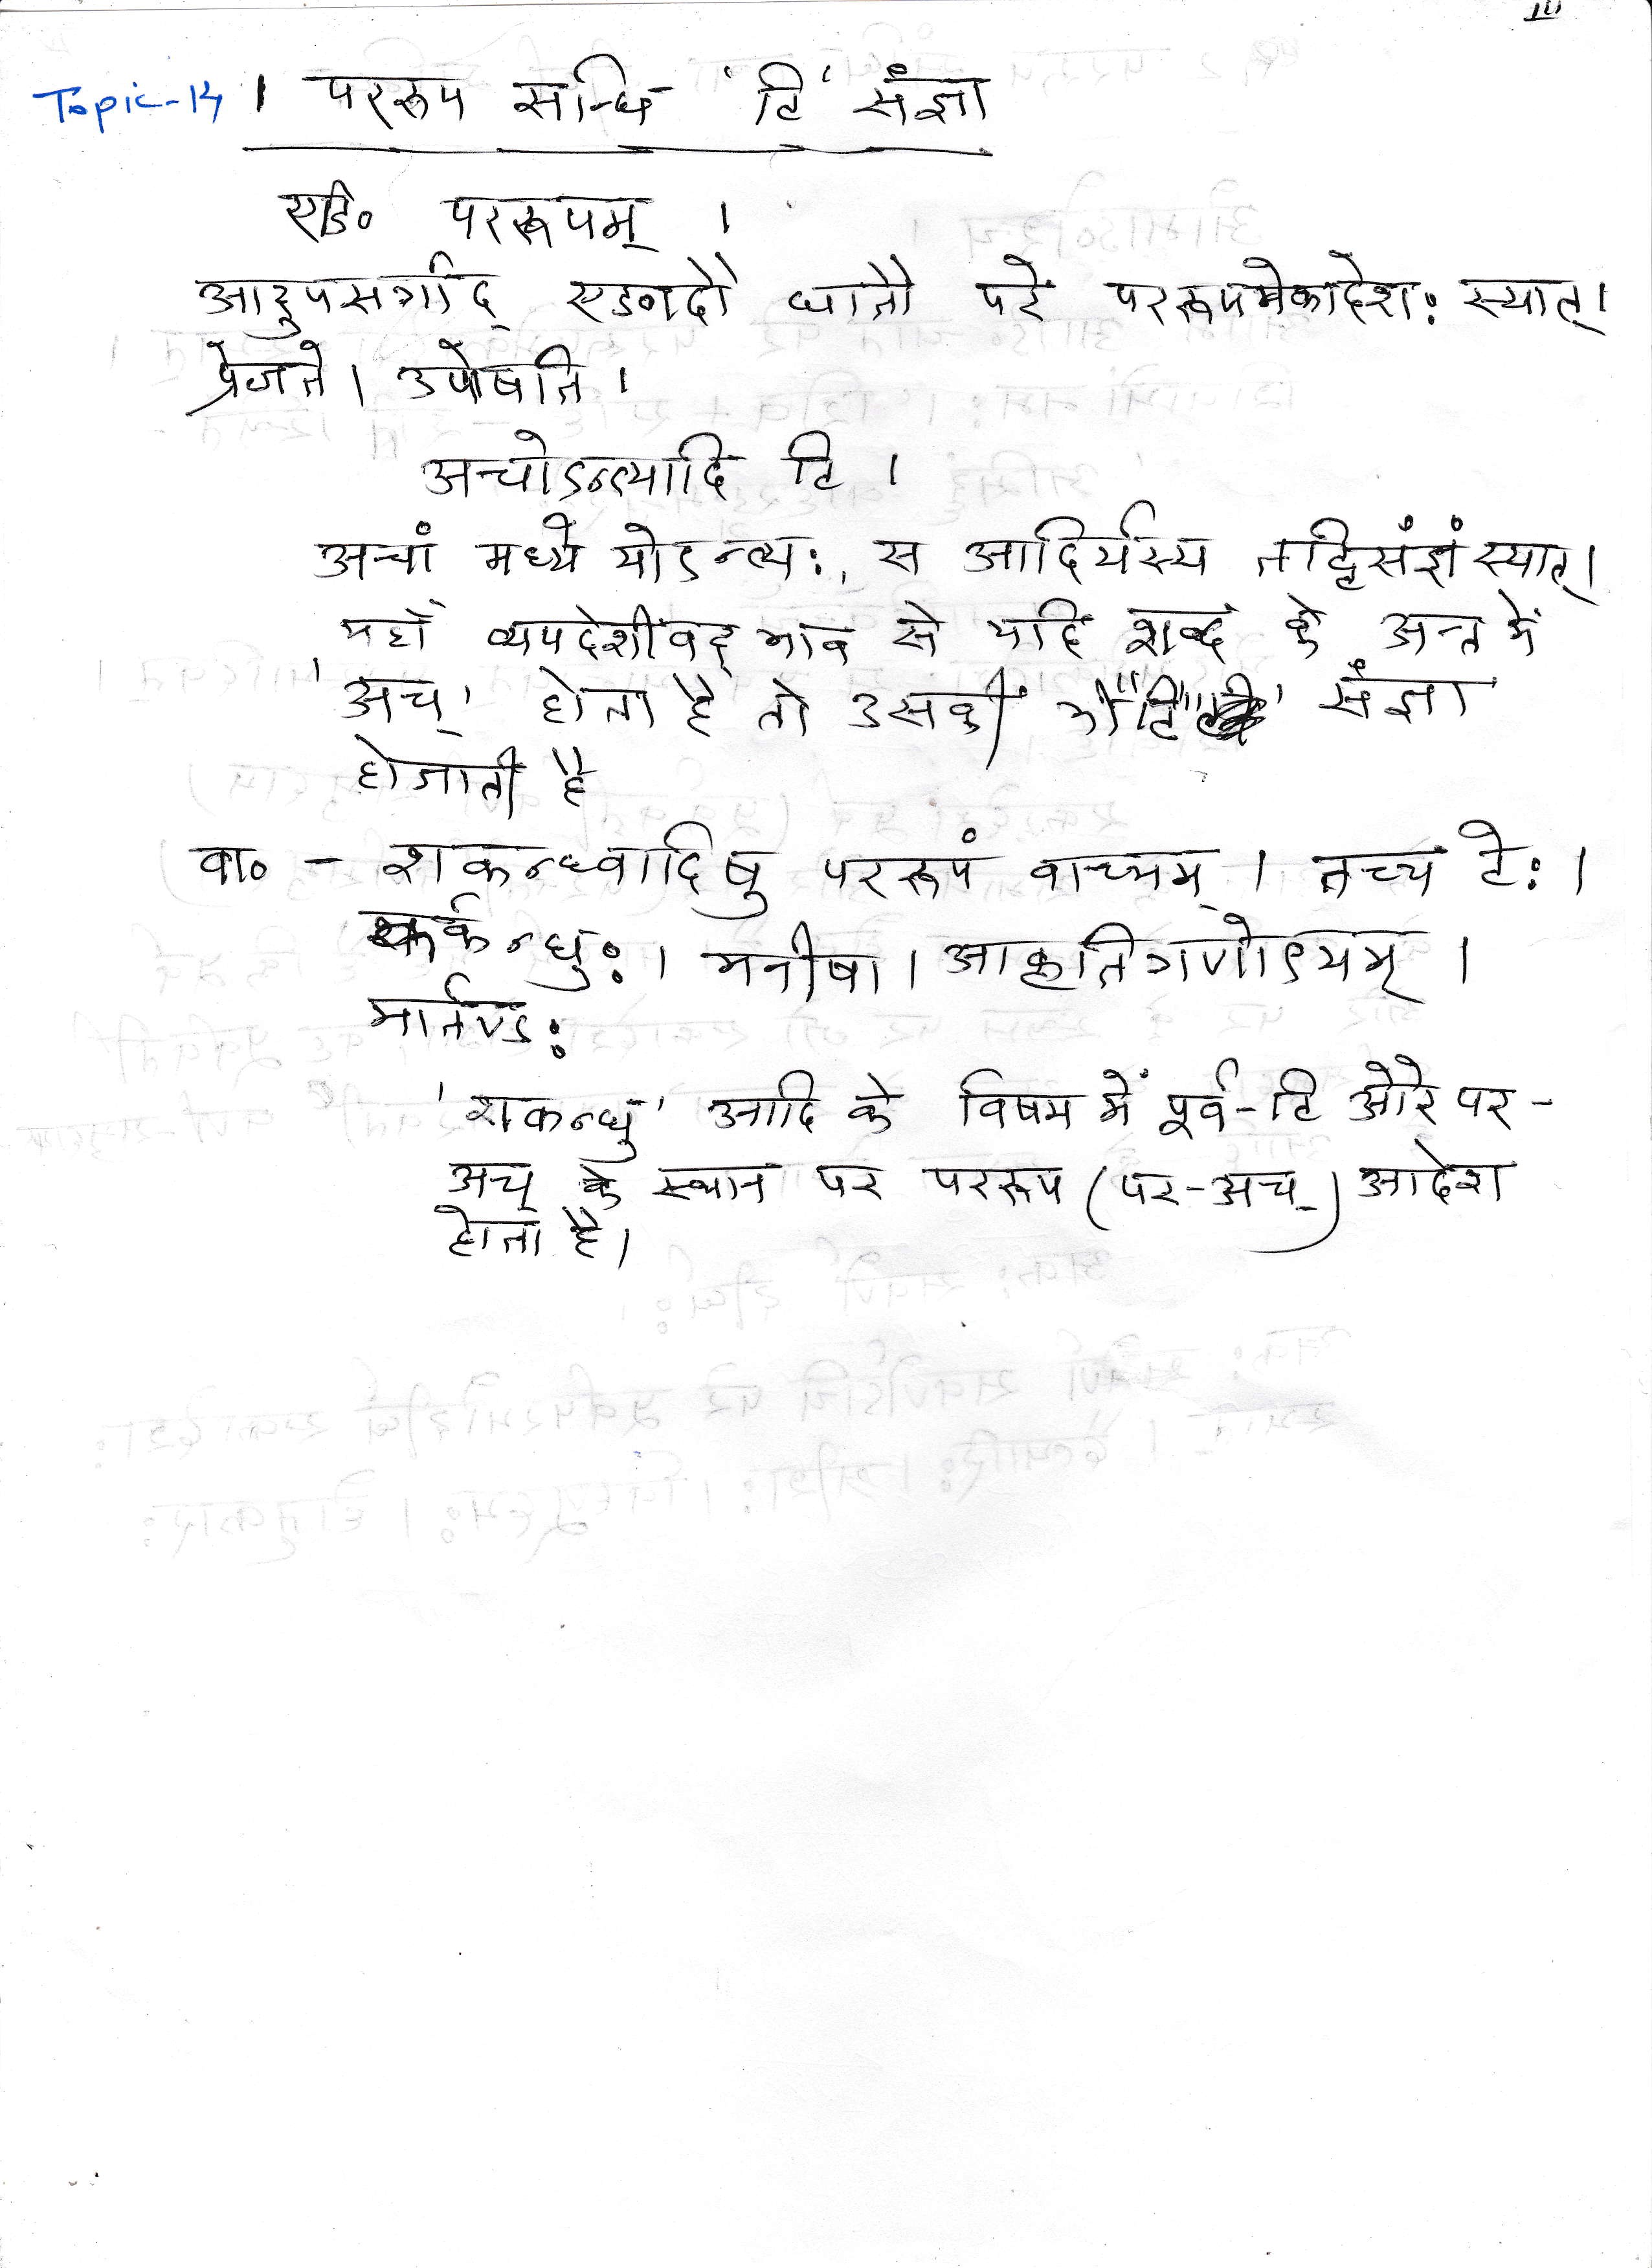 Topic-14 । पररूप सन्धि 'टि' संज्ञा
एडि० पररूपम् ।
आदुपसर्गाद् एडणदौ धातौ परे पररूपमेकादेशः स्यात् ।
प्रेजते । उपोषति ।
अचोऽन्त्यादि टि ।
अचां मध्ये योऽन्त्यः, स आदिर्यस्य तट्टिसंज्ञं स्यात् ।
यहाँ व्यपदेशीवद् भाव से यदि शब्द के अन्त में
'अच्' होता है तो उसकी "टि" संज्ञा
होजाती है
वा० - शकन्ध्वादिषु पररूपं वाच्यम् । तच्च टेः ।
कर्कन्धुः । मनीषा । आकृतिगणोऽयम् ।
मार्तण्डः
'शकन्धु' आदि के विषय में पूर्व-टि और पर-
अच् के स्थान पर पररूप (पर-अच्) आदेश
होता है ।